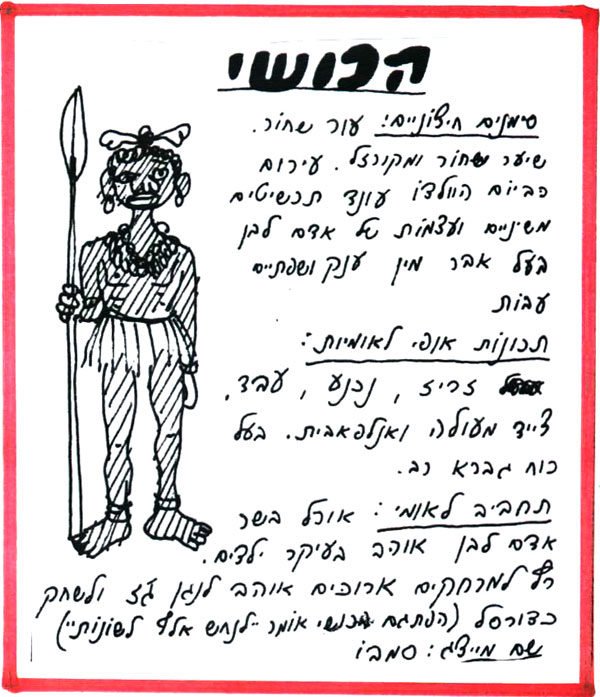 הכושי
סימנים חיצוניים: עור שחור.
שיער שחור ומקורזל. עירום
כביום היוולדו עונד תכשיטים
משיניים ועצמות של אדם לבן
בעל אבר מין ענק ושפתיים
עבות
תכונות אופי לאומיות:
זריז, נכנע, עבד,
צייד מעולה ואנלפאבית. בעל
כוח גברא רב.
תחביב לאומי: אוכל בשר
אדם לבן אוהב בעיקר ילדים.
רץ למרחקים ארוכים אוהב לנגן ג'ז ולשחק
כדורסל (הפתגם הכושי אומר "לנחש אלף לשונות")
שם מייצג: סמבו